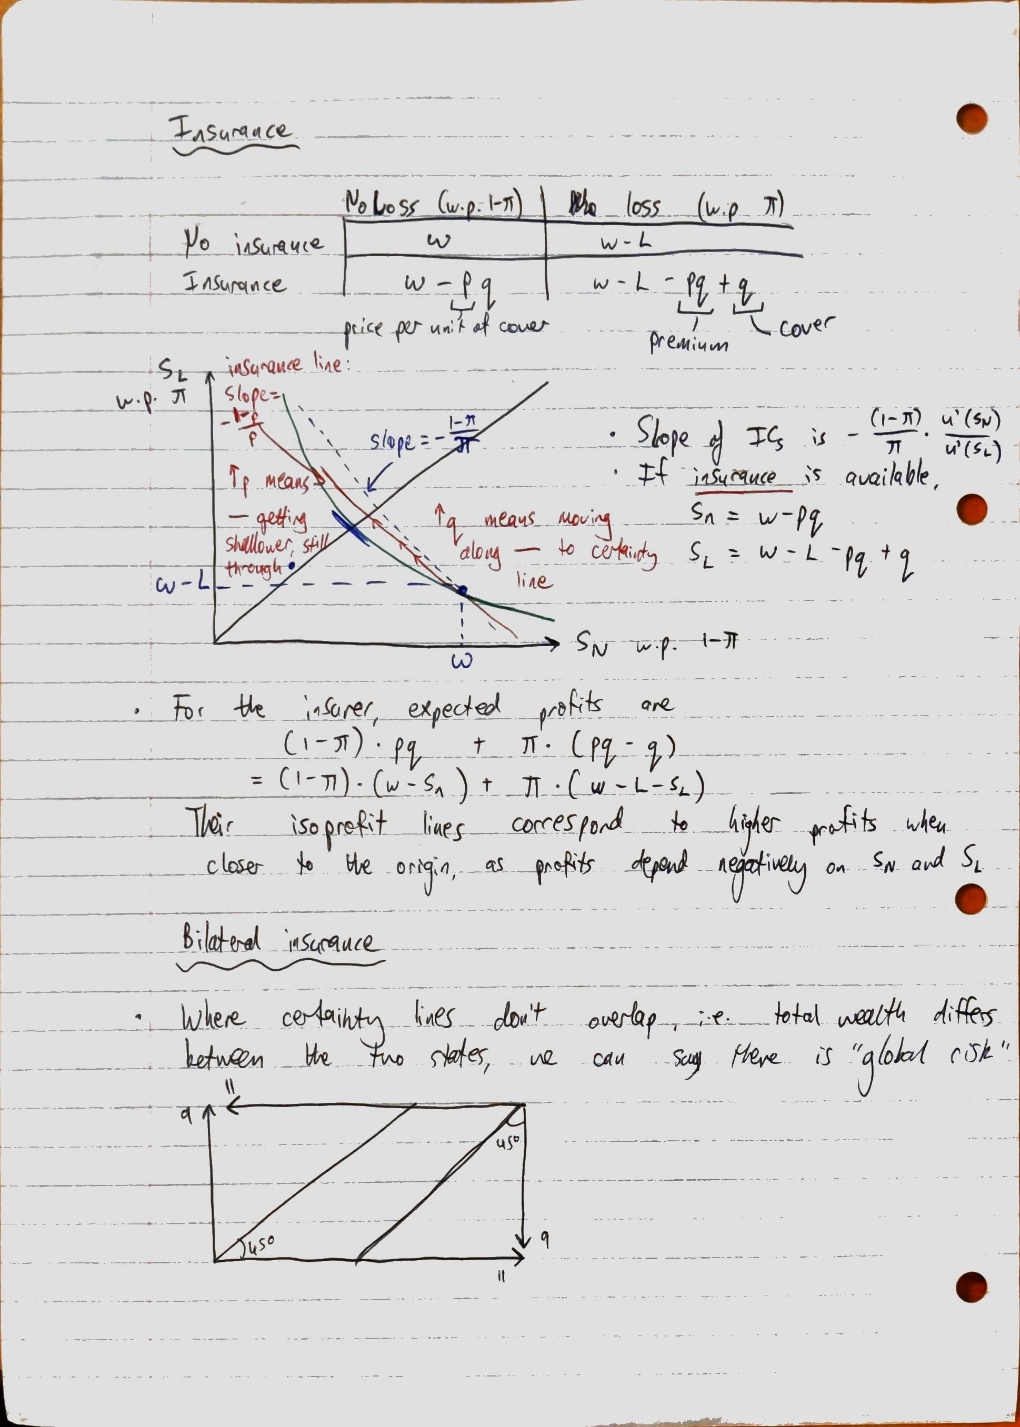 Insurance
No Loss (w.p. 1-π) loss (w.p. π)
No insurance w w-L
Insurance w - pq w - L - pq + q
price per unit of cover premium cover
S_L
w.p. π
insurance line:
slope=
-\frac{1-p}{p}
slope = -\frac{1-π}{π}
↑p means
— getting
shallower, still
through •
↑q means moving
along — to certainty
line
w-L
w
S_N w.p. 1-π
· Slope of ICs is -\frac{(1-π)}{π} · \frac{u'(S_N)}{u'(S_L)}
· If insurance is available,
S_n = w-pq
S_L = w - L - pq + q
· For the insurer, expected profits are
(1-π) · pq + π · (pq - q)
= (1-π) · (w - S_n) + π · (w - L - S_L)
Their isoprofit lines correspond to higher profits when
closer to the origin, as profits depend negatively on S_N and S_L
Bilateral insurance
· Where certainty lines don't overlap, i.e. total wealth differs
between the two states, we can say there is "global risk"
45°
45°